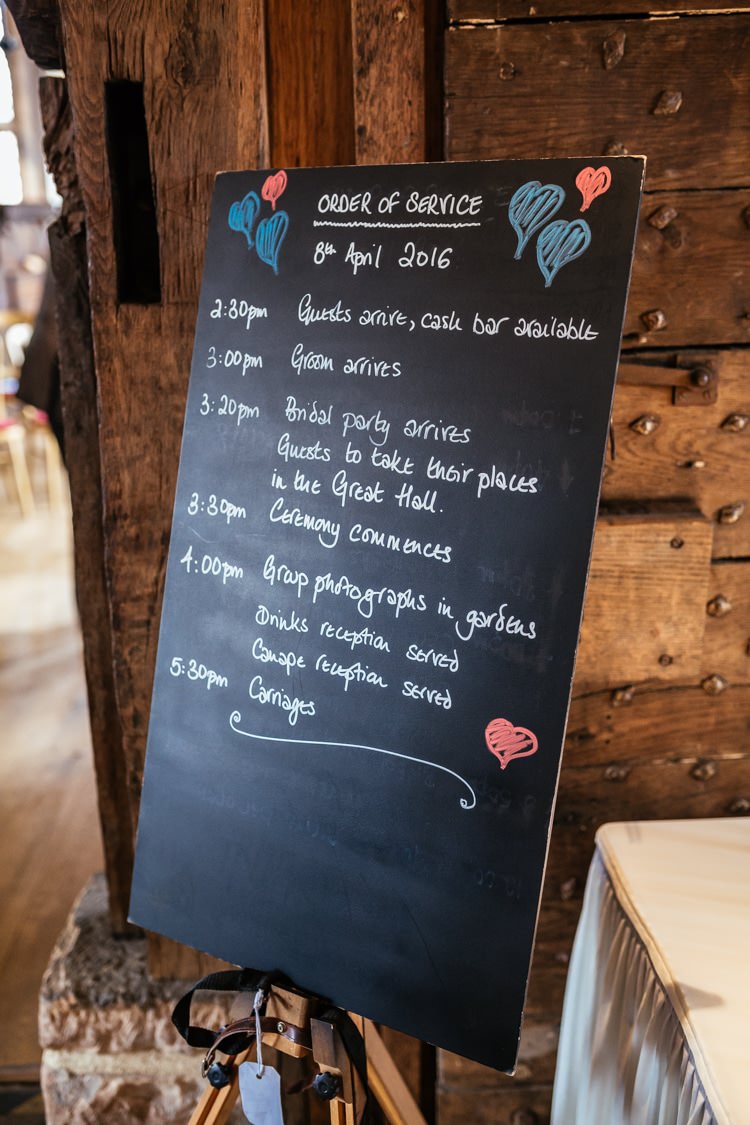 ORDER OF SERVICE
8th April 2016
2:30pm Guests arrive, cash bar available
3:00pm Groom arrives
3:20pm Bridal party arrives
Guests to take their places
in the Great Hall.
3:30pm Ceremony commences
4:00pm Group photographs in gardens
Drinks reception served
Canape reception served
5:30pm Carriages